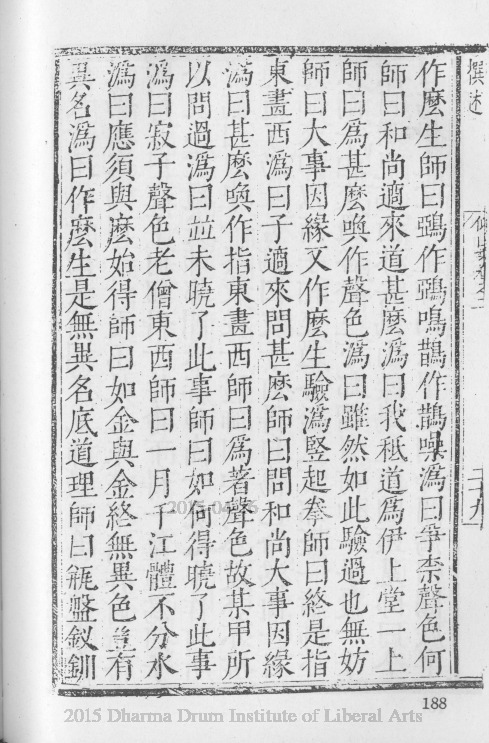 撰述
作麼生師曰鵶作鵶鳴鵲作鵲噪溈曰爭柰聲色何
師曰和尚適來道甚麼溈曰我秪道為伊上堂一上
師曰為甚麼喚作聲色溈曰雖然如此驗過也無妨
師曰大事因緣又作麼生驗溈竪起拳師曰終是指
東畫西溈曰子適來問甚麼師曰問和尚大事因緣
溈曰甚麼喚作指東畫西師曰為著聲色故某甲所
以問過溈曰並未曉了此事師曰如何得曉了此事
溈曰寂子聲色老僧東西師曰一月千江體不分水
溈曰應須與麼始得師曰如金與金終無異色豈有
異名溈曰作麼生是無異名底道理師曰缾盤釵釧
二十九
188
2015 Dharma Drum Institute of Liberal Arts